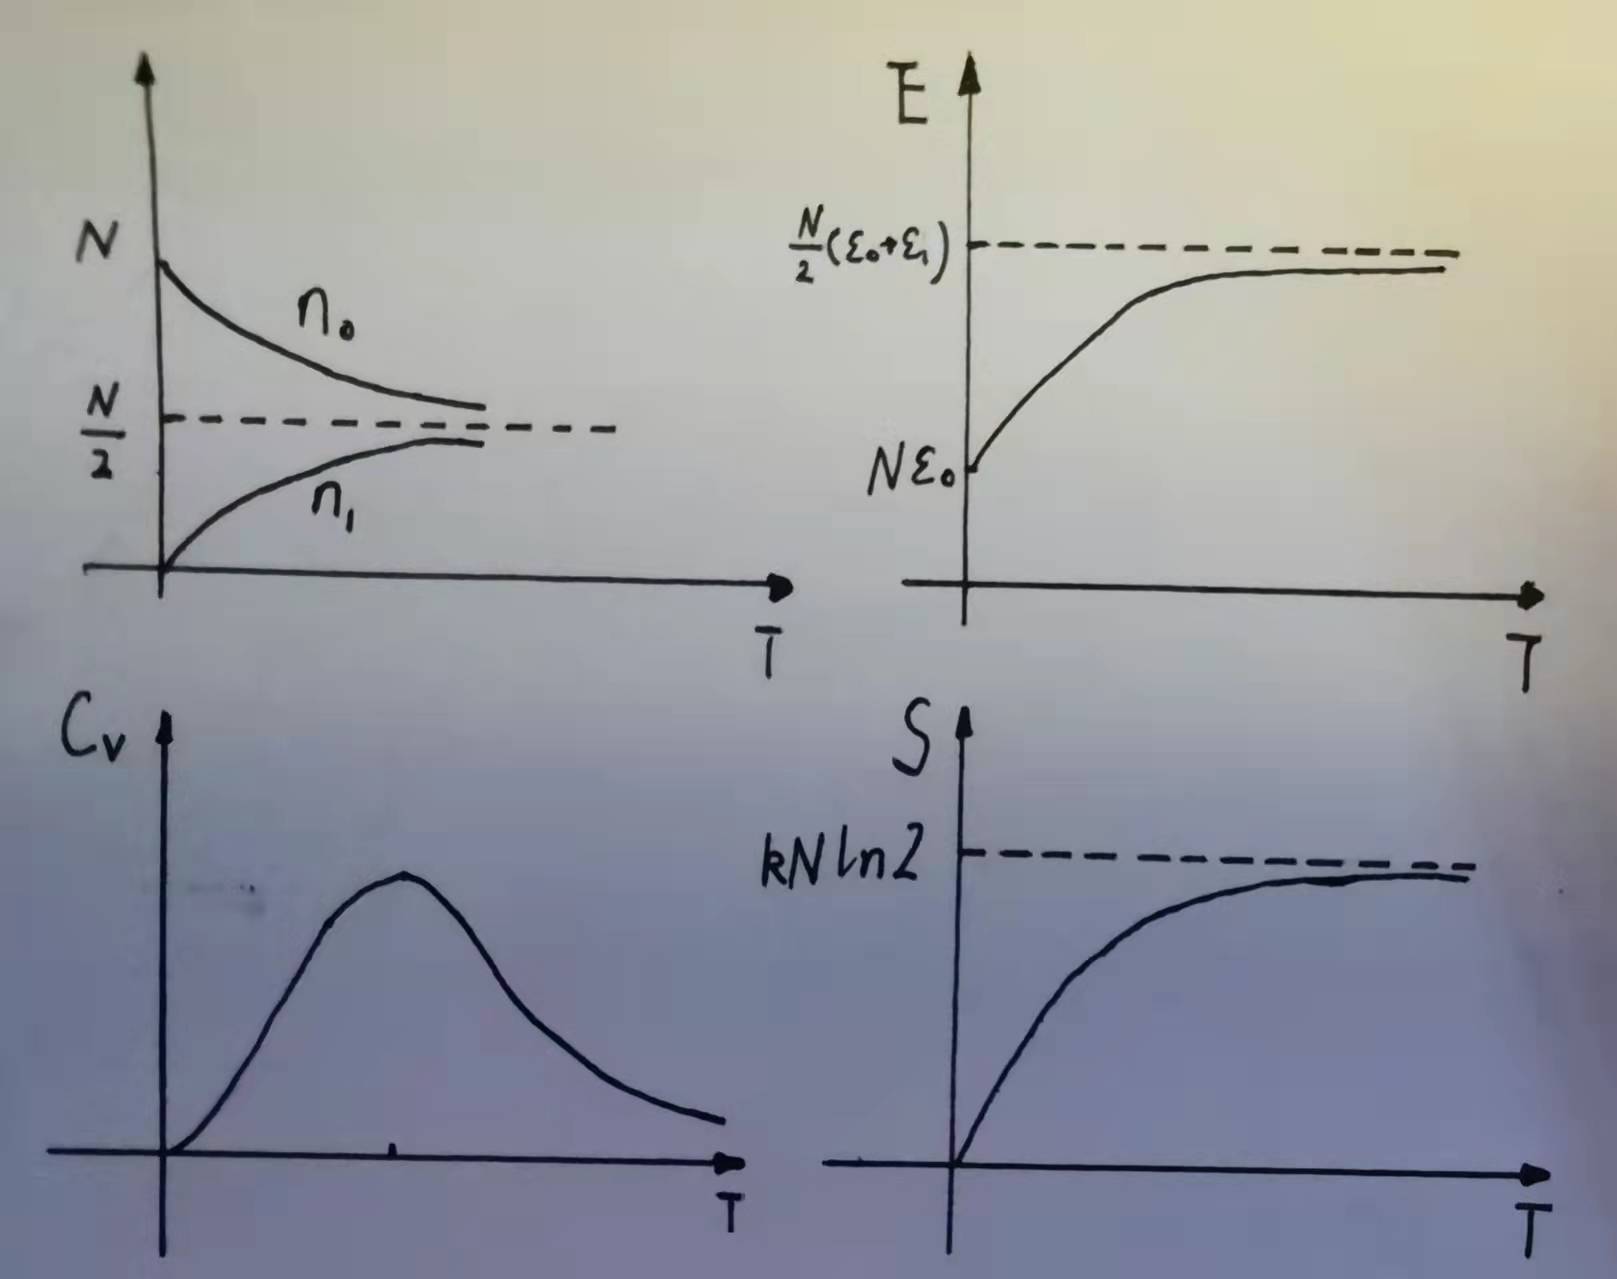 N
n₀
N/2
n₁
T
E
N/2 (ε₀+ε₁)
Nε₀
T
Cv
T
S
kNln2
T